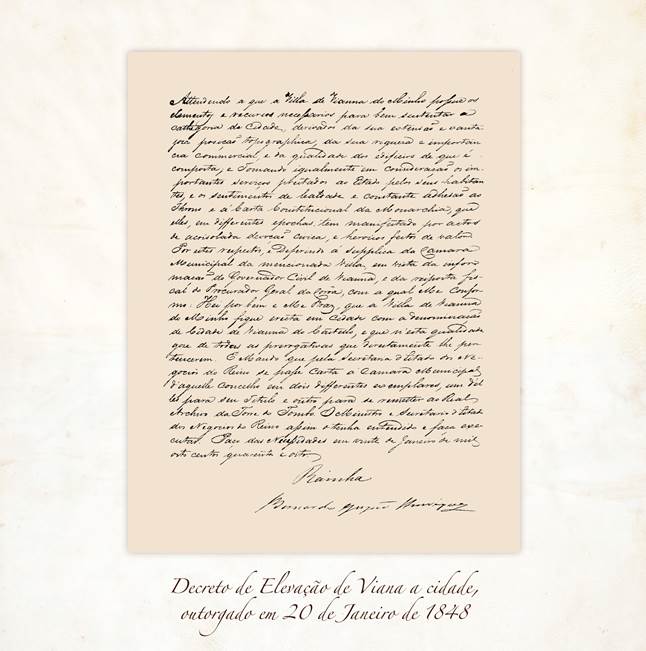 Attendendo a que a Villa de Vianna do Minho possue os
elementos, e recursos necessarios para bem sustentar a
cathegoria de Cidade, derivados da sua extensão e vanta-
josa posição topographica, da sua riqueza e importan-
cia commercial, e da qualidade dos edificios de que é
composta, e Tomando igualmente em consideração os im-
portantes serviços prestados ao Estado pelos seus habitan-
tes, e os sentimentos de lealdade e constante adhesão ao
Throno e à Carta Constitucional da Monarchia, que
elles, em differentes epochas, tem manifestado por actos
de acrisolada devoção civica, e heroicos feitos de valor:
Por estes respeitos, Deferindo á supplica da Camara
Municipal da mencionada Villa, em vista da infor-
mação do Governador Civil de Vianna, e da resposta fis-
cal do Procurador Geral da Corôa, com a qual Me Confor-
mo: Hei por bem e Me Praz, que a Villa de Vianna
do Minho fique erecta em Cidade com a denominação
de Cidade de Vianna do Castello, e que n'esta qualidade
gose de todas as prerogativas que directamente lhe per-
tencerem. E Mando que pela Secretaria d'Estado dos Ne-
gocios do Reino se passe Carta á Camara Municipal
d'aquelle Concelho em dois differentes exemplares, um del-
les para seu Titulo e outro para se remetter ao Real
Archivo da Torre do Tombo. O Ministro e Secretario d'Estado
dos Negocios do Reino assim o tenha entendido e faça exe-
cutar. Paço das Necessidades em vinte de Janeiro de mil
oito centos quarenta e oito.
Rainha
Bernardo Henriques
Decreto de Elevação de Viana a cidade,
outorgado em 20 de Janeiro de 1848